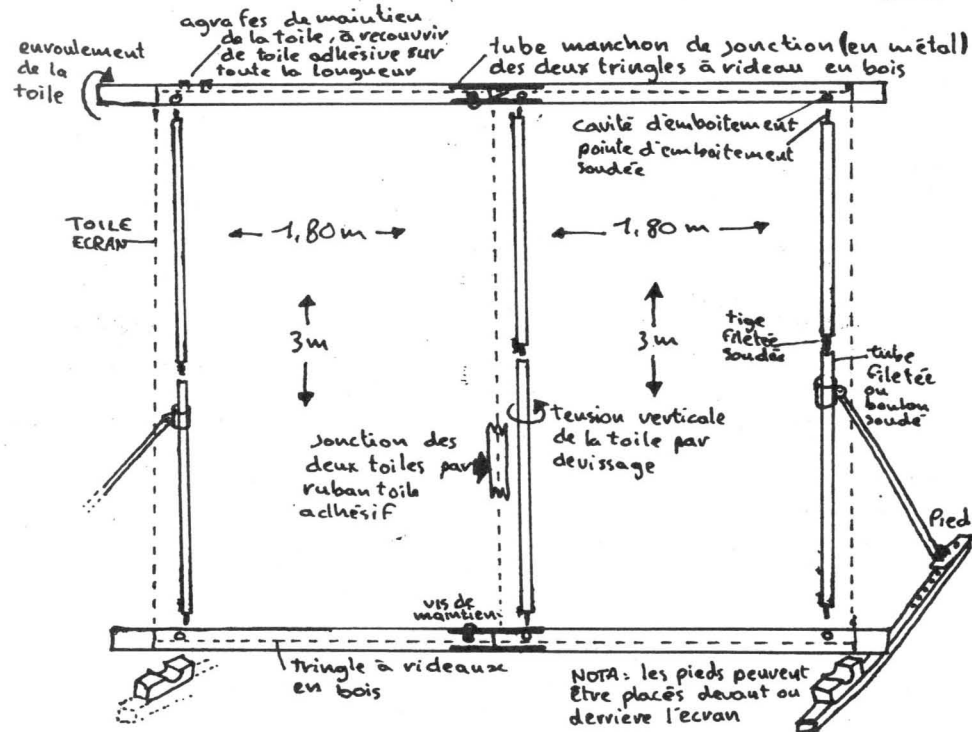 enroulement
de la
toile
agrafes de maintien
de la toile, à recouvrir
de toile adhésive sur
toute la longueur
tube manchon de jonction (en métal)
des deux tringles à rideau en bois
cavité d'emboitement
pointe d'emboitement
soudée
TOILE
ECRAN
1,80 m
1,80 m
3 m
3 m
tige
filetée
soudée
tube
filetée
ou
boulon
soudé
jonction des
deux toiles par
ruban toile
adhésif
tension verticale
de la toile par
devissage
Pied
vis de
maintien
tringle à rideaux
en bois
NOTA: les pieds peuvent
être placés devant ou
derrière l'ecran